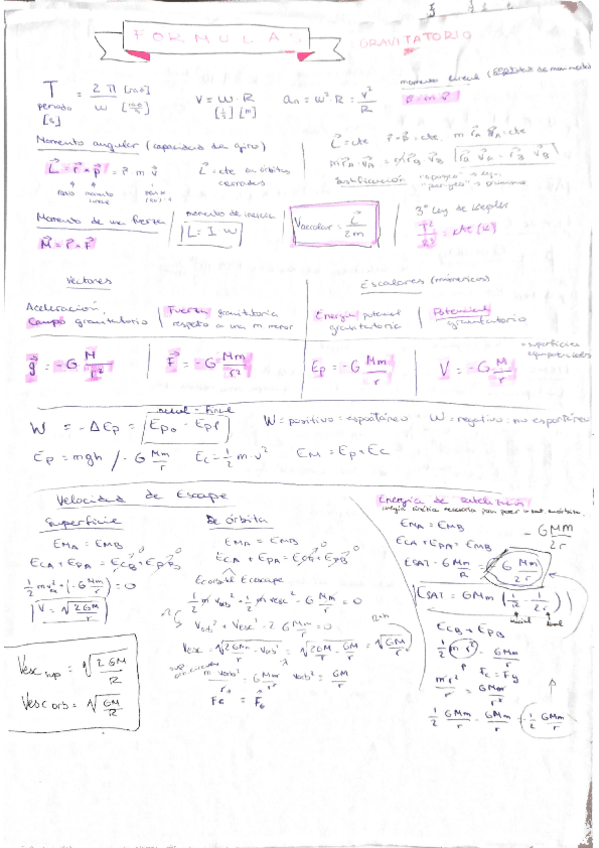 FORMULAS
GRAVITATORIO
T = 2π [rad] / w [rad/s]
periodo
[s]
v = w R
[1/s] [m]
an = w² R = v²/R
momento lineal
p = m v
Momento angular (capacidad de giro)
L = r × p = r m v
L = cte en órbitas
cerradas
momento
lineal
L = cte r · p = cte. m r v = cte
m rA · vA = m rB vB
rA vA = rB vB
Justificación
Momento de una fuerza
M = r × F
momento de inercia
L = I w
Vareolar = L/2m
3ª Ley de Kepler
T²/R³ = cte (K)
Vectores
Escalares (numéricos)
Aceleración,
Campo gravitatorio
Fuerza gravitatoria
respecto a una m menor
Energía potencial
gravitatoria
Potencial
gravitatorio
g = -G M/r²
F = -G Mm/r²
Ep = -G Mm/r
V = -G M/r
superficies
equipotenciales
inicial - final
W = -ΔEp = Epo - Epf
W = positivo = espontáneo · W = negativo: no espontáneo
Ep = mgh / -G Mm/r
Ec = 1/2 m · v²
EM = Ep + Ec
Velocidad de Escape
Superficie
EMA = EMB
ECA + EPA = ECB + EPB
1/2 m v² + (-G Mm/r) = 0
V = √2GM/r
De órbita
EMA = EMB
ECA + EPA = ECB + EPB
Ecorbit Ecescape
1/2 m vorb² + 1/2 m vesc² - G Mm/r = 0
Vorb² + Vesc² - 2 GMm/r = 0
Vesc = √2GM/r - Vorb² = √2GM/r - GM/r = √GM/r
m vorb²/r = GMm/r² vorb² = GM/r
Fc = Fg
Vesc sup = √2GM/R
Vesc orb = √GM/R
Energía de satélites:
EMA = EMB
- GMm/2r
ECA + EPA = EMB
ESAT - G Mm/R = - G Mm/2r
ESAT = GMm (1/R - 1/2r)
inicial final
ECB + EPB
1/2 m v² - GMm/r
Fc = Fg
m v²/r = GMm/r²
1/2 GMm/r - GMm/r = -1/2 GMm/r